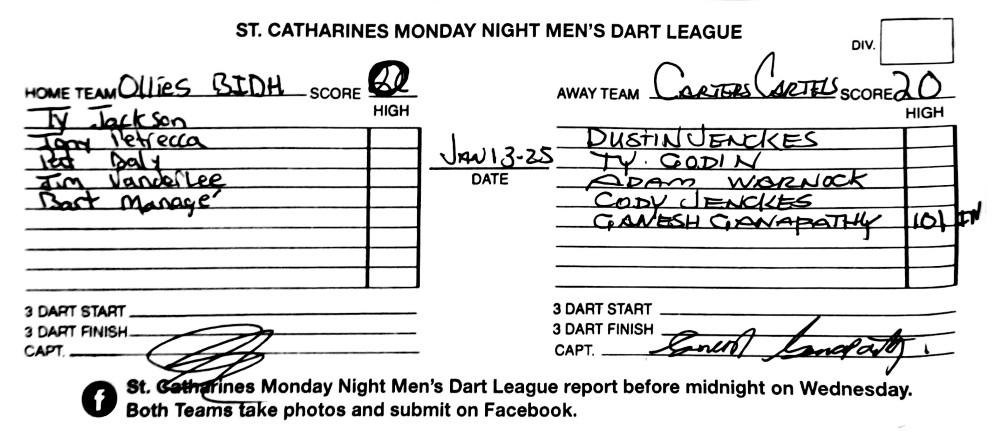 ST. CATHARINES MONDAY NIGHT MEN'S DART LEAGUE
DIV.
HOME TEAM Ollies BIDH SCORE
HIGH
Ty Jackson
Tony Petrecca
Daly
Jim VanderLee
Bart Manage
JAN 13-25
DATE
AWAY TEAM CARTERS CARTELS SCORE 20
HIGH
DUSTIN JENCKES
TY GODIN
ADAM WARNOCK
CODY JENCKES
GANESH GANAPATHY 101 IN
3 DART START
3 DART FINISH
CAPT.
3 DART START
3 DART FINISH
CAPT. Ganesh Ganapathy
f St. Catharines Monday Night Men's Dart League report before midnight on Wednesday.
Both Teams take photos and submit on Facebook.